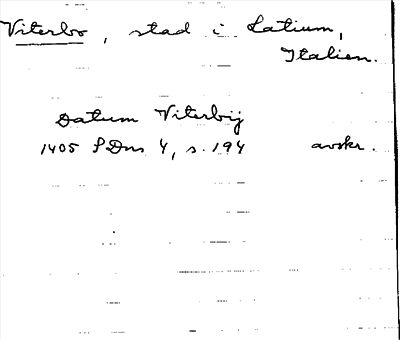 Viterbo, stad i Latium,
Italien.
Datum Viterbij
1405 SDns 4, s. 194 avskr.